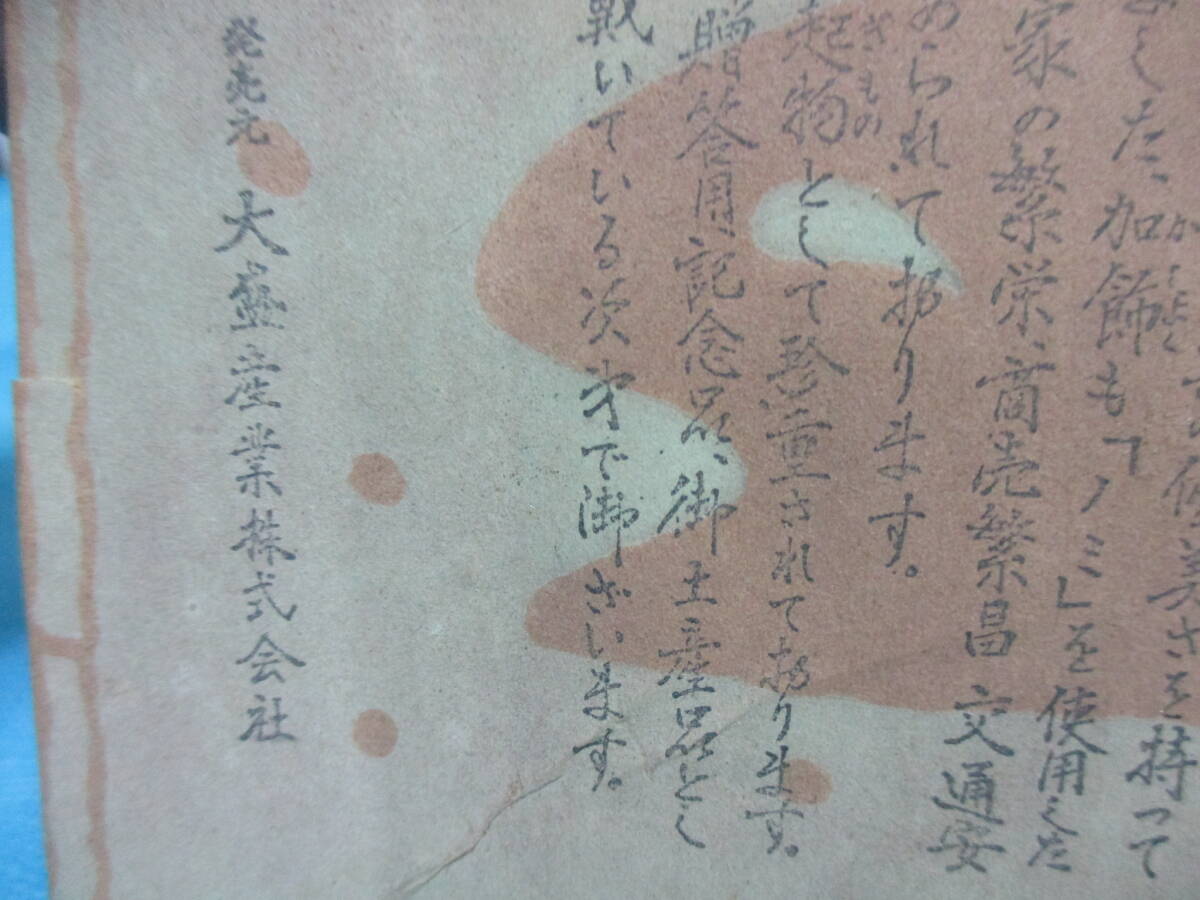 美さを持って
した、加飾も「ノミ」を使用した
家の繁栄、商売繁昌 交通安
められて我おります。
起物として珍重されております。
贈答用、記念品、御土産品とし
戴いている次才で御ざいます。
発売元 大盛産業株式会社